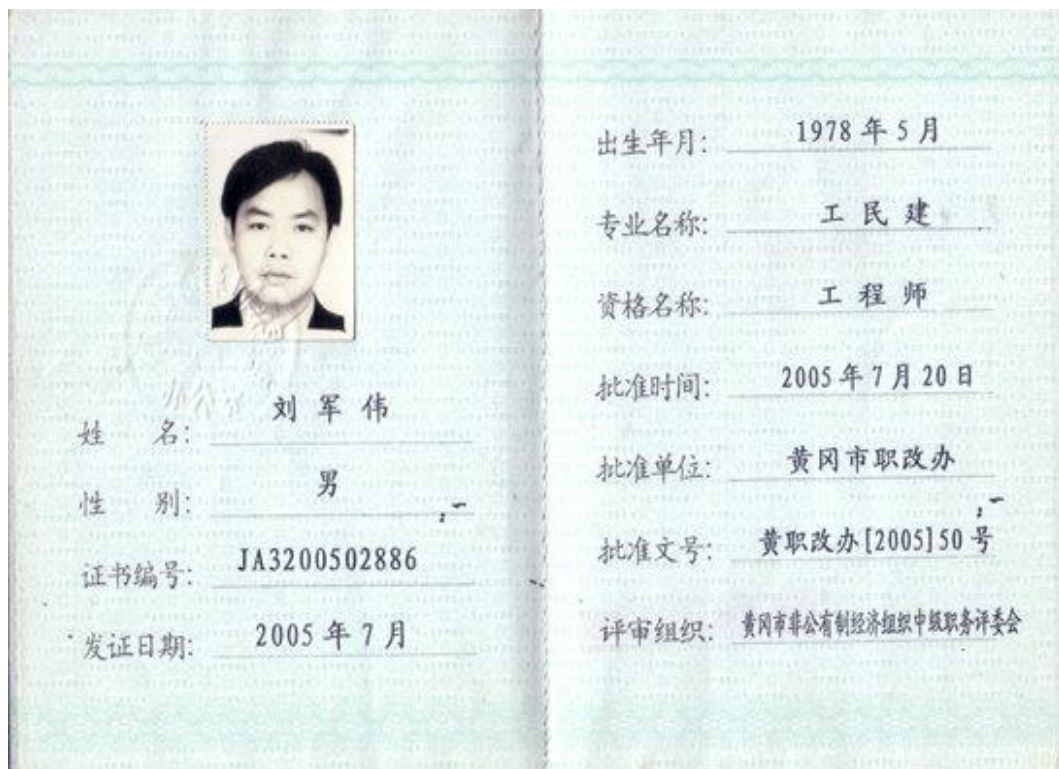 姓 名: 刘军伟
性 别: 男
证书编号: JA3200502886
发证日期: 2005年7月
出生年月: 1978年5月
专业名称: 工民建
资格名称: 工程师
批准时间: 2005年7月20日
批准单位: 黄冈市职改办
批准文号: 黄职改办[2005]50号
评审组织: 黄冈市非公有制经济组织中级职务评委会